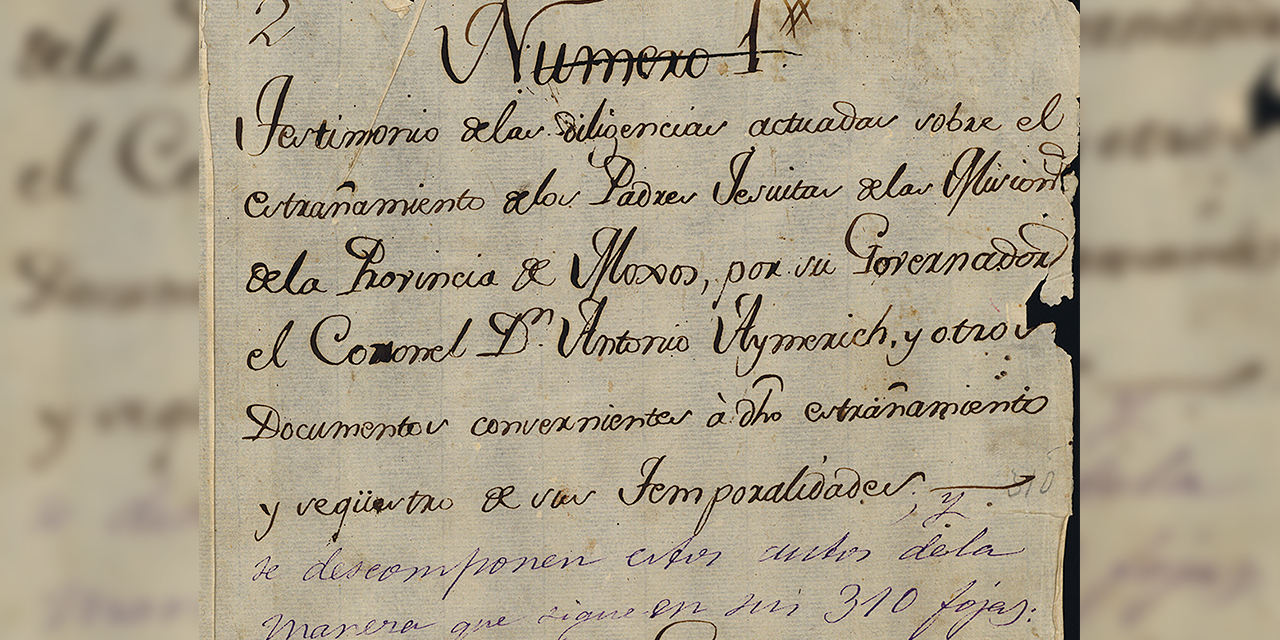 2
Numero 1
Testimonio delas diligencias actuadas sobre el
estrañamiento delos Padres Jesuitas delas Misiones
dela Provincia de Moxos, por su Governador
el Coronel Dn. Antonio Aymerich, y otros
Documentos convernientes à dho estrañamiento
y seqüestro de sus Temporalidades; y
se descomponen estos autos dela
manera que sigue en sus 310 fojas.
310